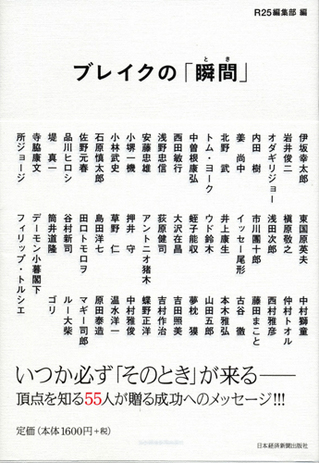 R25編集部 編
ブレイクの「瞬間」
とき
伊坂幸太郎
岩井俊二
オダギリジョー
内田 樹
姜 尚中
北野 武
トム・ヨーク
中曽根康弘
西田敏行
浅野忠信
安藤忠雄
小堺一機
小林武史
石原慎太郎
佐野元春
品川ヒロシ
堤 真一
寺脇康文
所ジョージ
東国原英夫
槇原敬之
浅田次郎
市川團十郎
イッセー尾形
井上康生
ウド鈴木
蛭子能収
大沢在昌
荻原健司
アントニオ猪木
押井 守
草野 仁
島田洋七
田口トモロヲ
谷村新司
筒井道隆
デーモン小暮閣下
フィリップ・トルシエ
中村獅童
仲村トオル
西村雅彦
藤田まこと
古谷 徹
本木雅弘
山田五郎
夢枕 獏
吉田照美
吉村作治
蝶野正洋
中村雅俊
温水洋一
原田泰造
マギー司郎
ルー大柴
ゴリ
いつか必ず「そのとき」が来る――
頂点を知る55人が贈る成功へのメッセージ!!!
定価(本体1600円+税)
日本経済新聞出版社